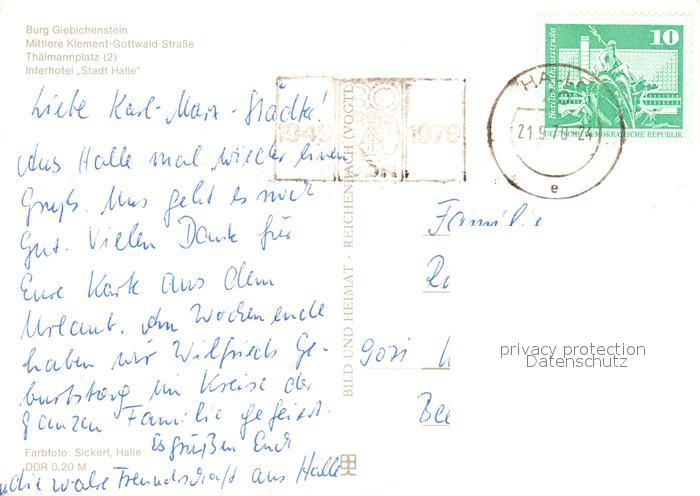 Burg Giebichenstein
Mittlere Klement-Gottwald-Straße
Thälmannplatz (2)
Interhotel „Stadt Halle"
Liebe Karl-Marx-Städter!
Aus Halle mal wieder einen
Gruß. Uns geht es noch
Gut. Vielen Dank für
Eure Karte aus dem
Urlaub. Am Wochenende
haben wir Wilfrieds Ge-
burtstag im Kreise der
ganzen Familie gefeiert.
Es grüßen Euch
die Freundschaft aus Halle
Farbfoto: Sickert, Halle
DDR 0,20 M
BILD UND HEIMAT · REICHENBACH (VOGTL)
1949 1979
HALLE
21.9.79-24
e
10
Berlin Rathausstraße
DEUTSCHE DEMOKRATISCHE REPUBLIK
Familie
9051
privacy protection
Datenschutz